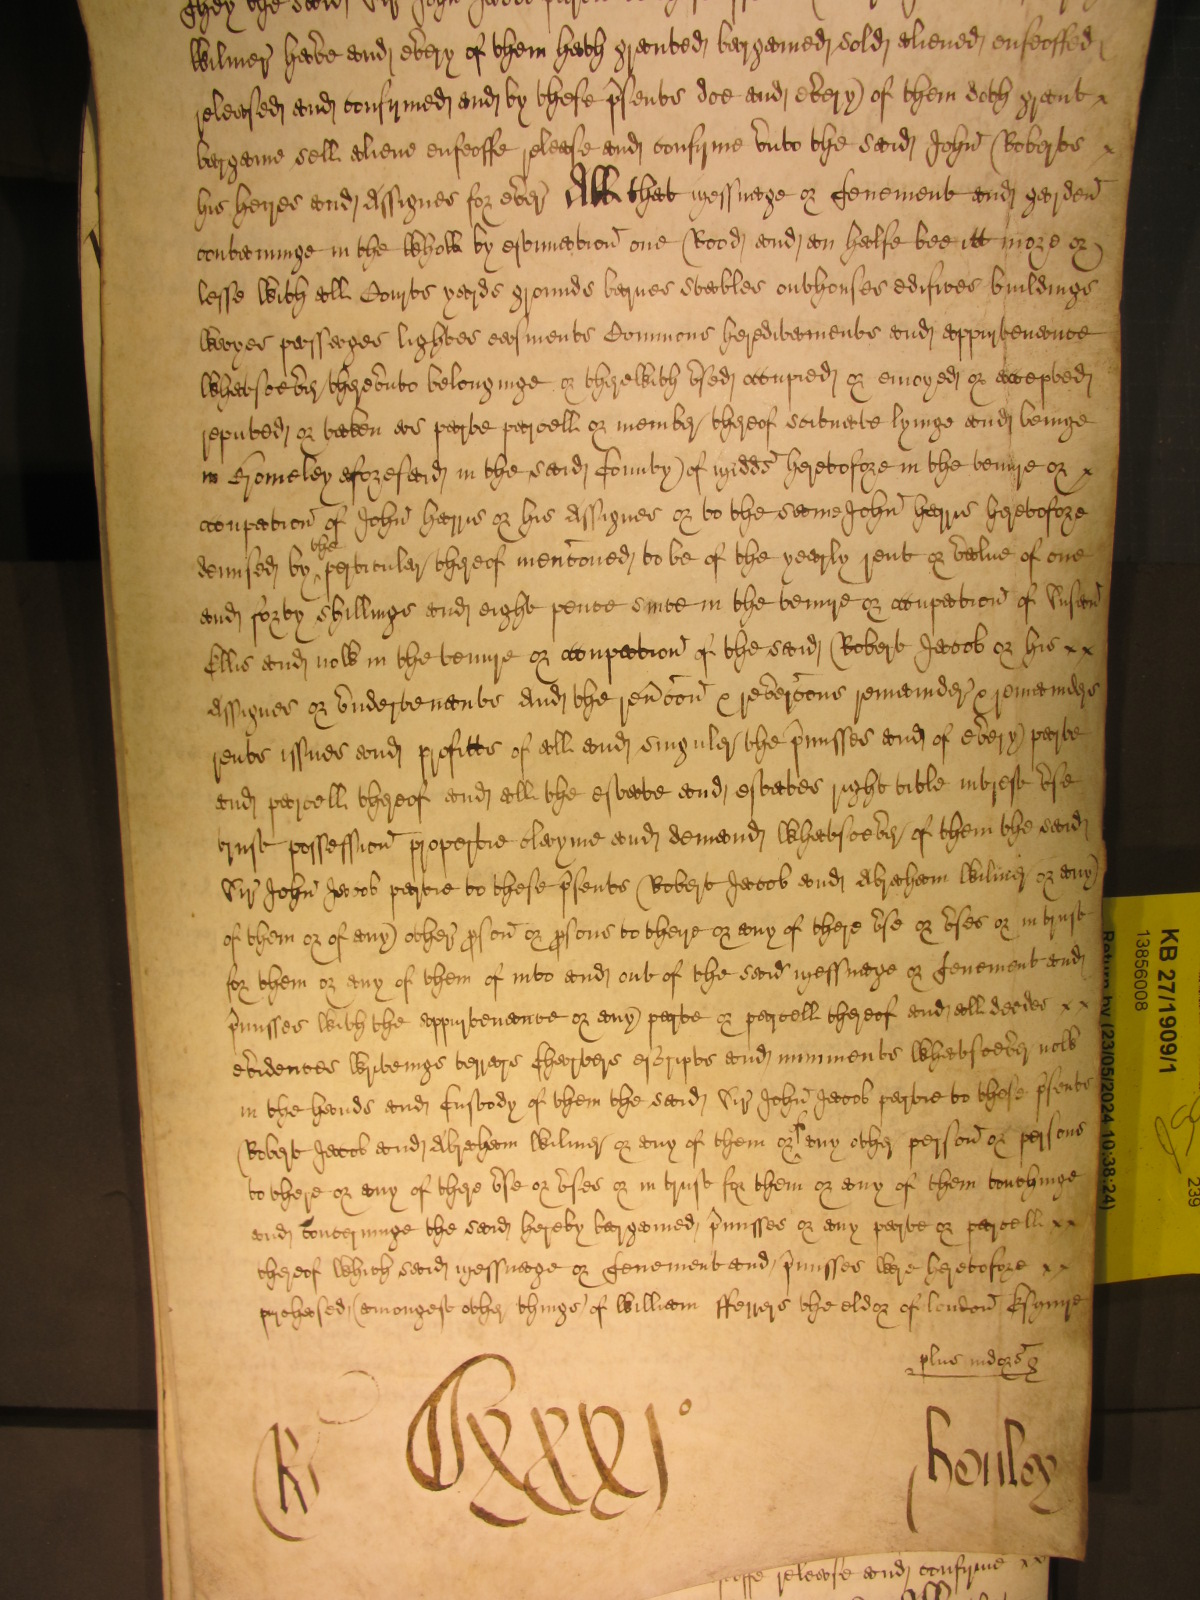 they the said Sir John Jacob
Wilmer have and every of them hath granted bargained sold aliened enfeoffed
released and confirmed and by these p̃sents doe and every of them doth grant x
bargaine sell aliene enfeoffe release and confirme vnto the said John Roberts x
his heires and Assignes for ever All that messuage or Tenement and garden
conteininge in the whole by estimation one Rood and an halfe bee itt more or
lesse with all Courts yards grounds barnes stables outhouses edifices buildings
wayes passages lightes easments Commons hereditaments and appurtenance
whatsoever therevnto belonginge or therewith vsed occupied or enioyed or accepted
reputed or taken as parte parcell or member thereof scituate lyinge and beinge
in Bromeley aforesaid in the said County of Midds heretofore in the tenure or x
occupation of John Harris or his Assignes or to the same John Harris heretofore
demised by the perticular thereof menc̃oned to be of the yearly rent or value of one
and forty shillings and eight pence since in the tenure or occupation of Susan
Ellis and now in the tenure or occupation of the said Robert Jacob or his x x
Assignes or vndertenants And the revc̃on & reverc̃ons remainder & remainders
rents issues and profitts of all and singuler the p̃misses and of every parte
and parcell thereof and all the estate and estates right title intrest vse
trust possession propertie clayme and demand whatsoever of them the said
Sir John Jacob partie to these p̃sents Robert Jacob and Abraham Wilmer or any
of them or of any other p̱son or p̱sons to there or any of there vse or vses or in trust
for them or any of them of into and out of the said messuage or Tenement and
p̃misses with the appurtenance or any parte or parcell thereof and all deedes x x
evidences writeings terrars Charters escripts and miniments whatsoever now
in the hands and Custody of them the said Sir John Jacob partie to these p̃sents
Robert Jacob and Abraham Wilmer or any of them or of any other person or persons
to there or any of there vse or vses or in trust for them or any of them touchinge
and concerninge the said hereby bargained p̃misses or any parte or parcell x x
thereof which said messuage or Tenement and p̃misses were heretofore x x
purchased (amongest other things) of William fferrers the eldor of London Esquire
plus indors̃
R
Cxxxj°
Henley
release and confirme x x
KB 27/1909/1
13856008
Return by (23/05/2024 16:38:24)
239